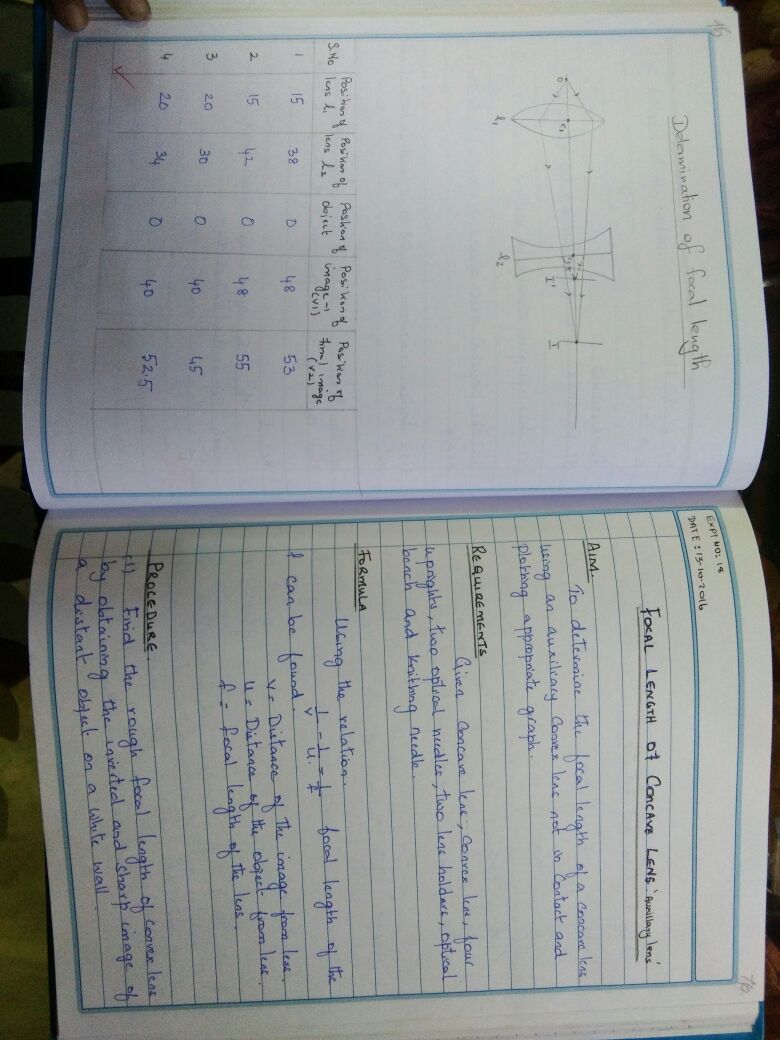 16
Determination of focal length
O
C1
l1
l2
I'
I
S.No Position of lens l1 Position of lens l2 Position of object Position of image-1 (v1) Position of final image (v2)
1 15 38 0 48 53
2 15 42 0 48 55
3 20 30 0 40 45
4 20 34 0 40 52.5
76
EXPT NO: 18
DATE: 13-10-2016
FOCAL LENGTH OF CONCAVE LENS: 'Auxillary lens'
AIM.
To determine the focal length of a concave lens
using an auxiliary convex lens not in contact and
plotting appropriate graph.
REQUIREMENTS
Given concave lens, convex lens, four
uprights, two optical needles, two lens holders, optical
bench and knitting needle.
FORMULA
Using the relation.
1/v - 1/u = 1/f focal length of the
f can be found
v = Distance of the image from lens.
u = Distance of the object from lens.
f = focal length of the lens.
PROCEDURE.
(1) Find the rough focal length of convex lens
by obtaining the inverted and sharp image of
a distant object on a white wall.